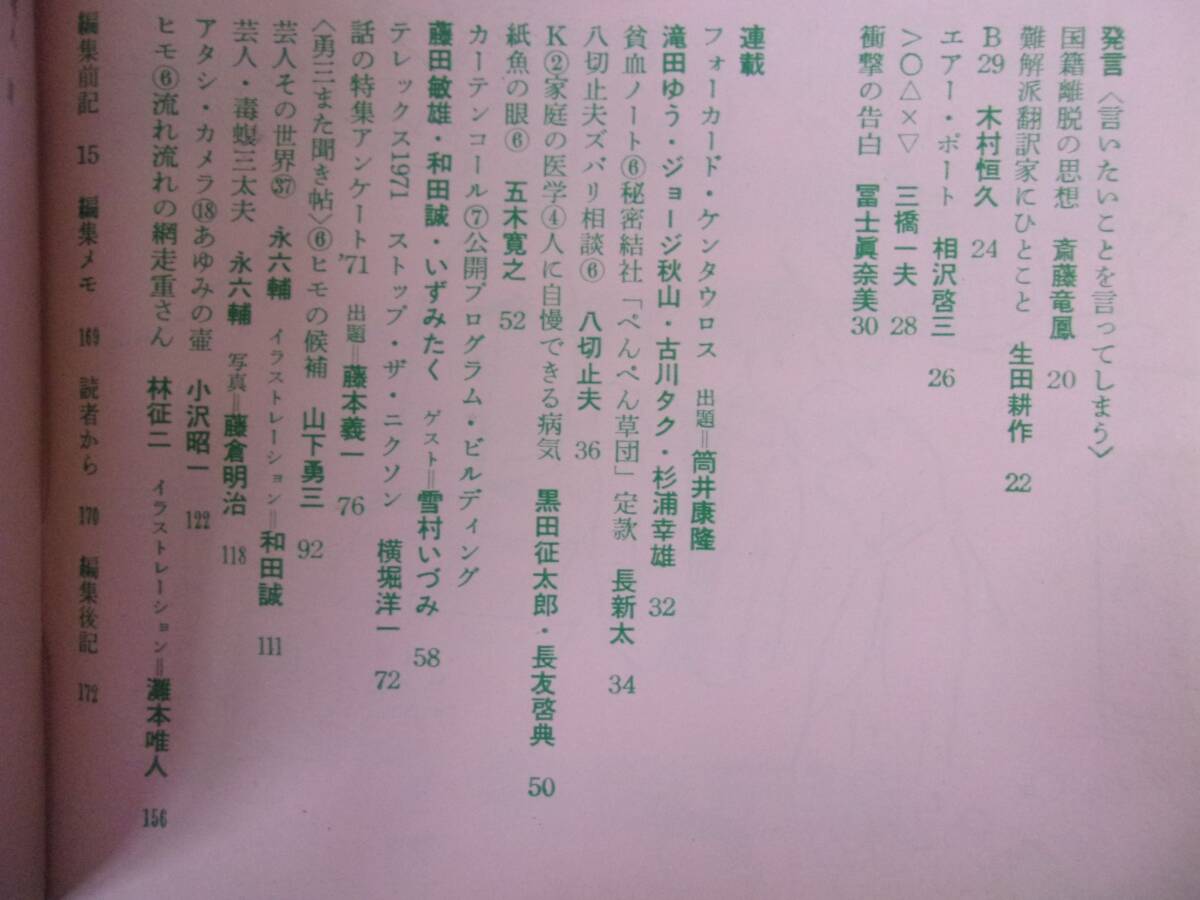 発言〈言いたいことを言ってしまう〉
国籍離脱の思想 斎藤竜鳳 20
難解派翻訳家にひとこと 生田耕作 22
B29 木村恒久 24
エアー・ポート 相沢啓三 26
>○△×▽ 三橋一夫 28
衝撃の告白 冨士眞奈美 30
連載
フォーカード・ケンタウロス 出題=筒井康隆
滝田ゆう・ジョージ秋山・古川タク・杉浦幸雄 32
貧血ノート⑥秘密結社「ぺんぺん草団」定款 長新太 34
八切止夫ズバリ相談⑥ 八切止夫 36
K②家庭の医学④人に自慢できる病気 黒田征太郎・長友啓典 50
紙魚の眼⑥ 五木寛之 52
カーテンコール⑦公開プログラム・ビルディング
藤田敏雄・和田誠・いずみたく ゲスト=雪村いづみ 58
テレックス1971 ストップ・ザ・ニクソン 横堀洋一 72
話の特集アンケート'71 出題=藤本義一 76
〈勇三また聞き帖〉⑥ヒモの候補 山下勇三 92
芸人その世界㊲ 永六輔 イラストレーション=和田誠 111
芸人・毒蝮三太夫 永六輔 写真=藤倉明治 118
アタシ・カメラ⑱あゆみの壷 小沢昭一 122
ヒモ⑥流れ流れの網走重さん 林征二 イラストレーション=灘本唯人 156
編集前記 15 編集メモ 169 読者から 170 編集後記 172